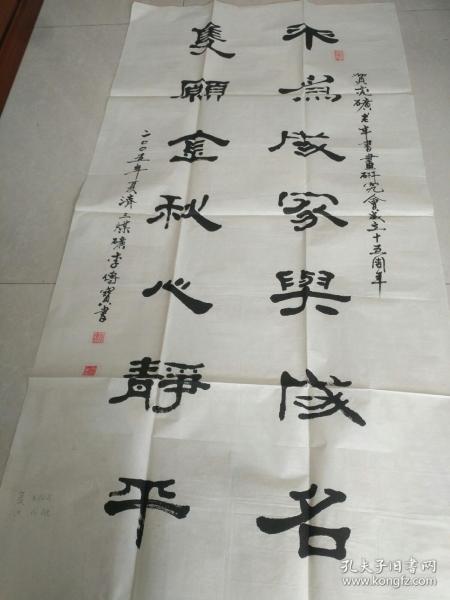 賀兖礦老年書畫研究會成立十五周年
不為成家與成名
隻願金秋心靜平
二〇〇五年夏濟三煤礦李傳寶書
孔夫子旧书网
www.kongfz.com